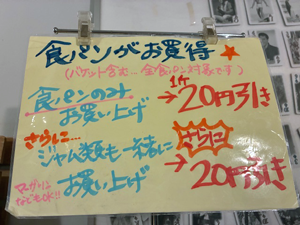 食パンがお買得
(バゲット含む…全食パン対象です)
食パンのみ
お買い上げ
1ケ
→20円引き
さらに…
ジャム類も一緒に
お買い上げ
さらに
→20円引き